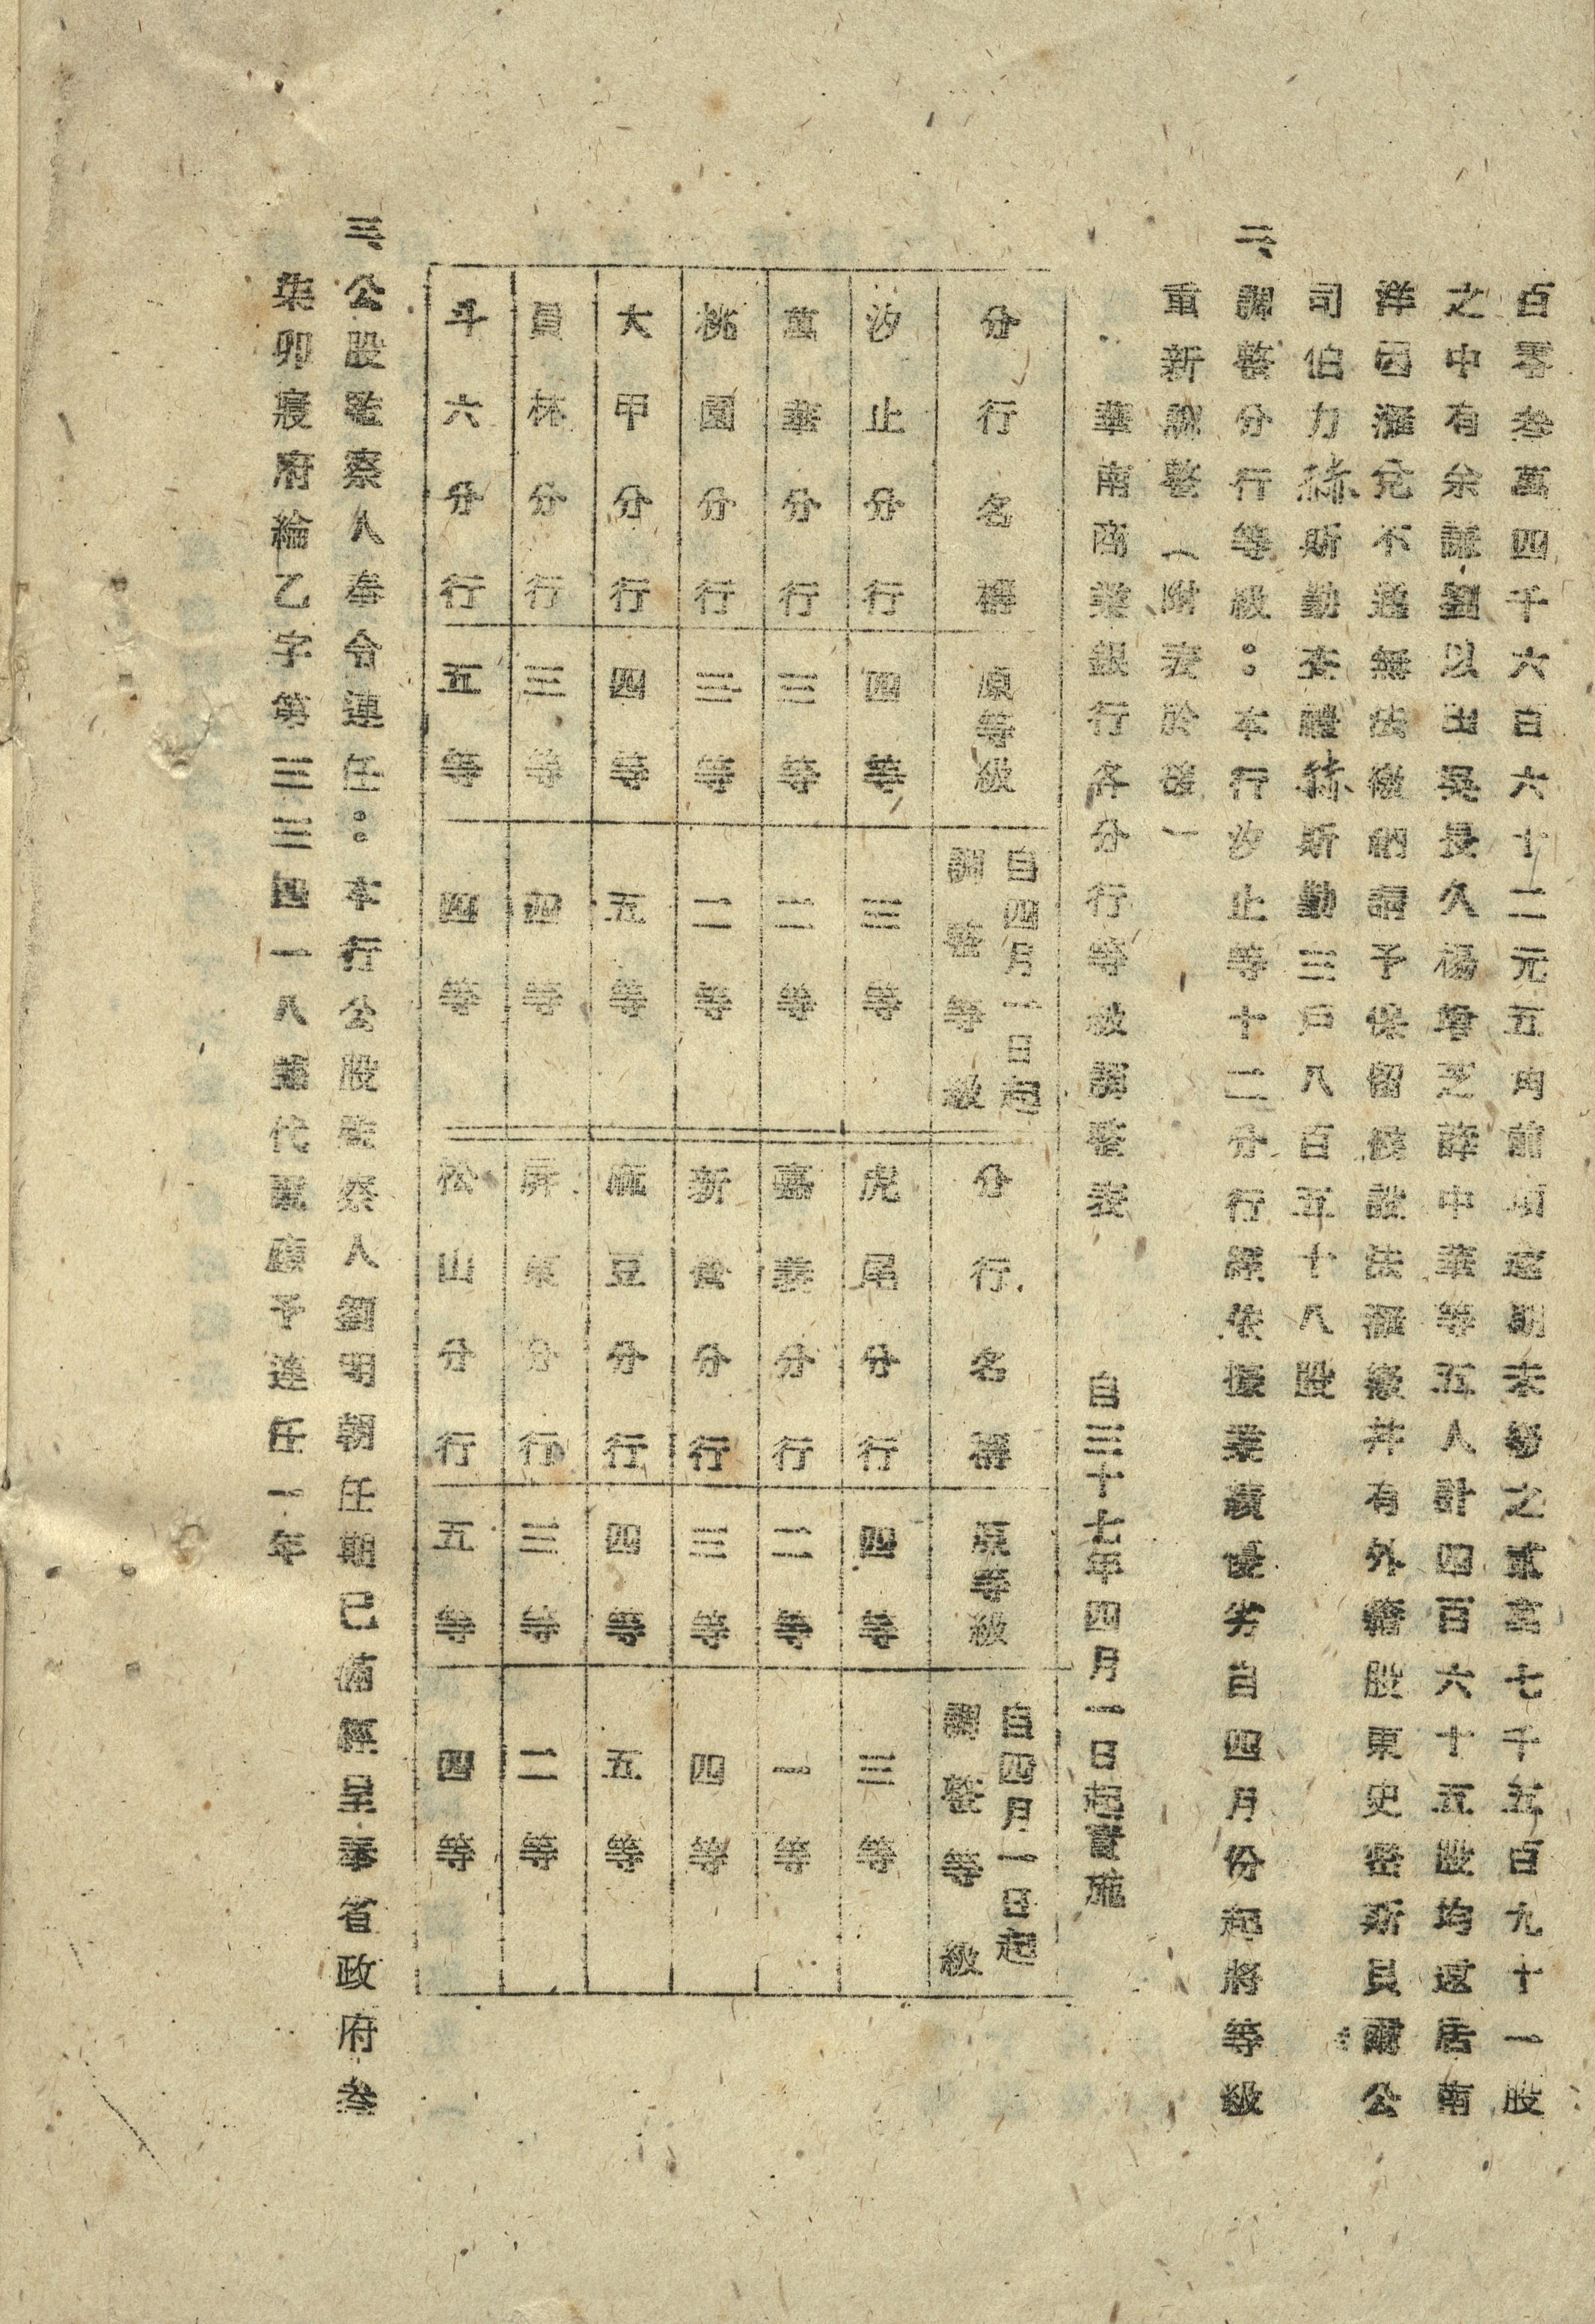 百零叁萬四千六百六十二元五角前項逾期未繳之貳萬七千五百九十一股
之中有余謀劉以出吳長久楊等芝許中華等五人計四百六十五股均返居南
洋因滙兌不通無法繳納請予保留設法滙繳并有外籍股東史密斯員爾公
司伯力赫斯勤査禮赫斯勤三戶八百五十八股
二、調整分行等級：本行汐止等十二分行經依據業績優劣自四月份起將等級
重新調整（附表於後）
華南商業銀行各分行等級調整表　自三十七年四月一日起實施
分行名稱　原等級　自四月一日起調整等級　分行名稱　原等級　自四月一日起調整等級
汐止分行　四等　三等　虎尾分行　四等　三等
萬華分行　三等　二等　嘉義分行　二等　一等
桃園分行　三等　二等　新營分行　三等　四等
大甲分行　四等　五等　麻豆分行　四等　五等
員林分行　三等　四等　屏東分行　三等　二等
斗六分行　五等　四等　松山分行　五等　四等
三、公股監察人奉令連任：本行公股監察人劉明朝任期已滿經呈奉省政府叁
柒卯寢府綸乙字第三三四一八號代電續予連任一年